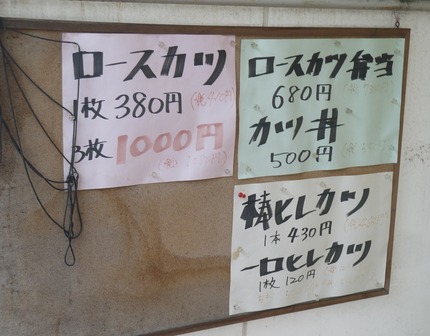 ロースカツ
1枚 380円
3枚 1000円
ロースカツ弁当
680円
カツ丼
500円
棒ヒレカツ
1本 430円
一口ヒレカツ
1枚 120円